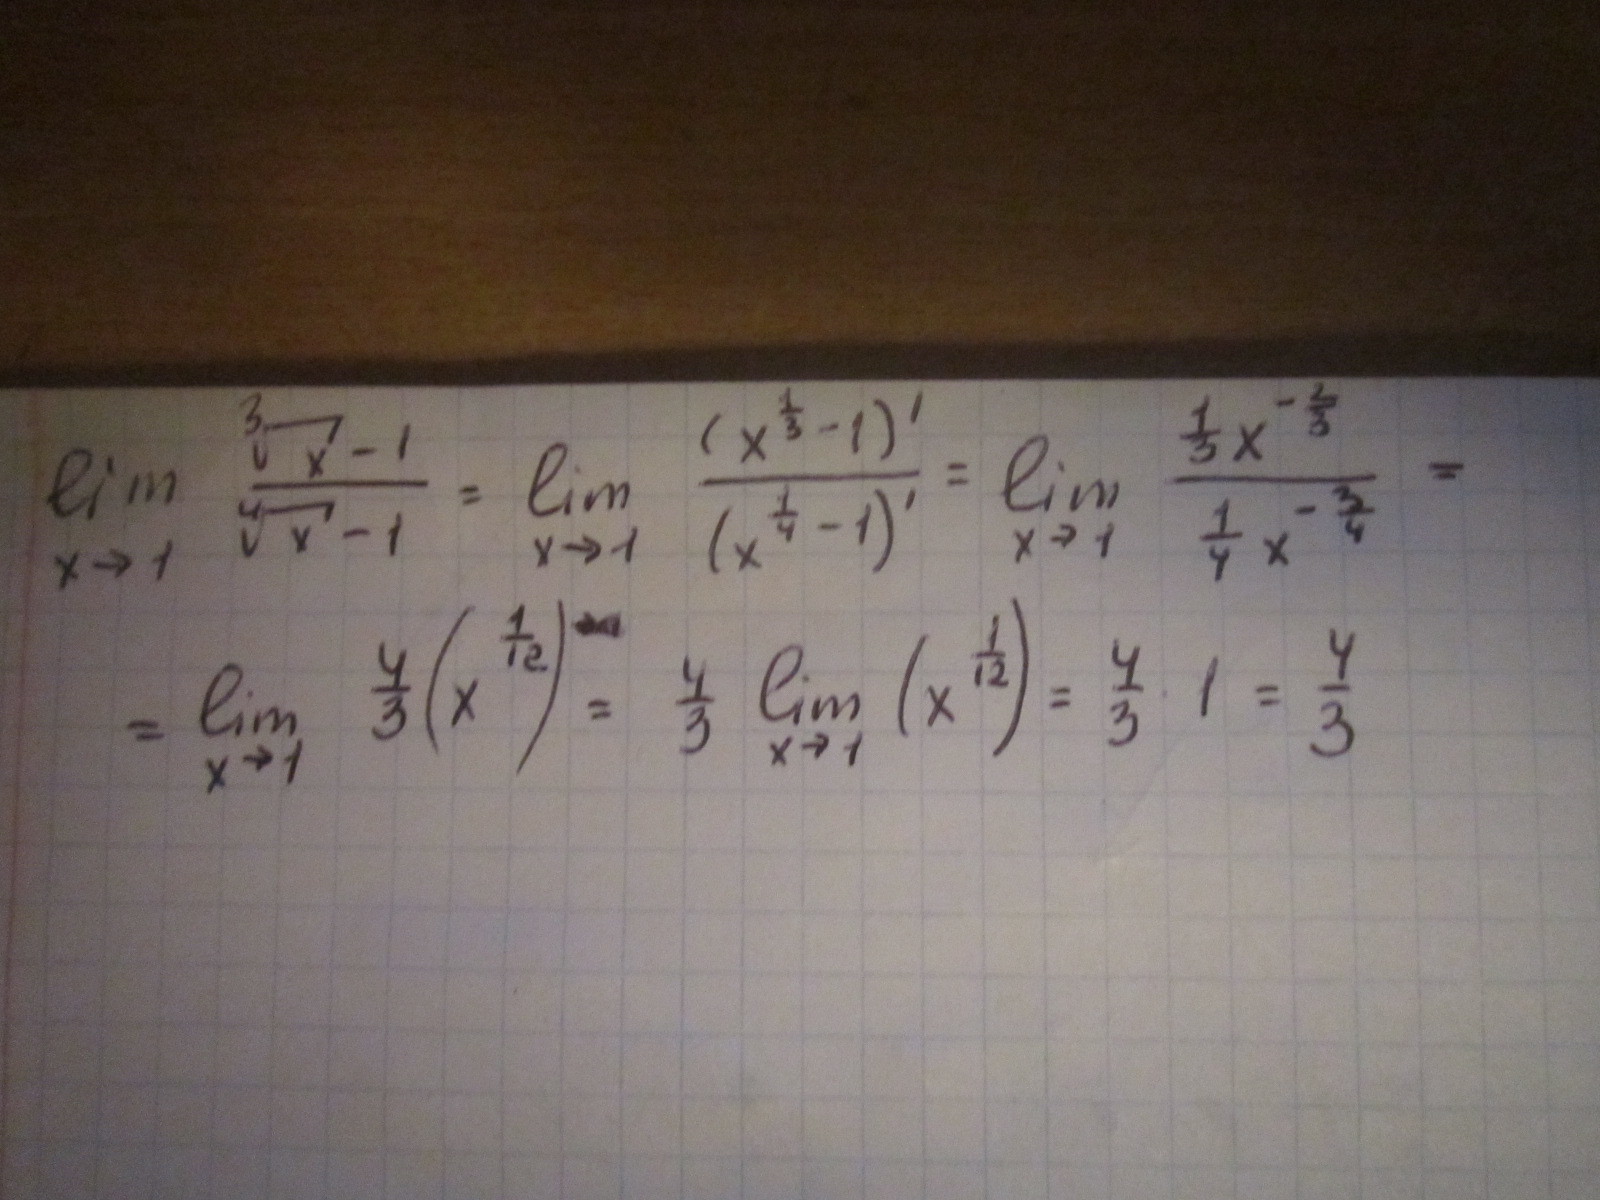 lim x→1 (∛x - 1)/(∜x - 1) = lim x→1 (x^(1/3) - 1)'/(x^(1/4) - 1)' = lim x→1 (1/3 x^(-2/3))/(1/4 x^(-3/4)) =
= lim x→1 4/3 (x^(1/12)) = 4/3 lim x→1 (x^(1/12)) = 4/3 · 1 = 4/3